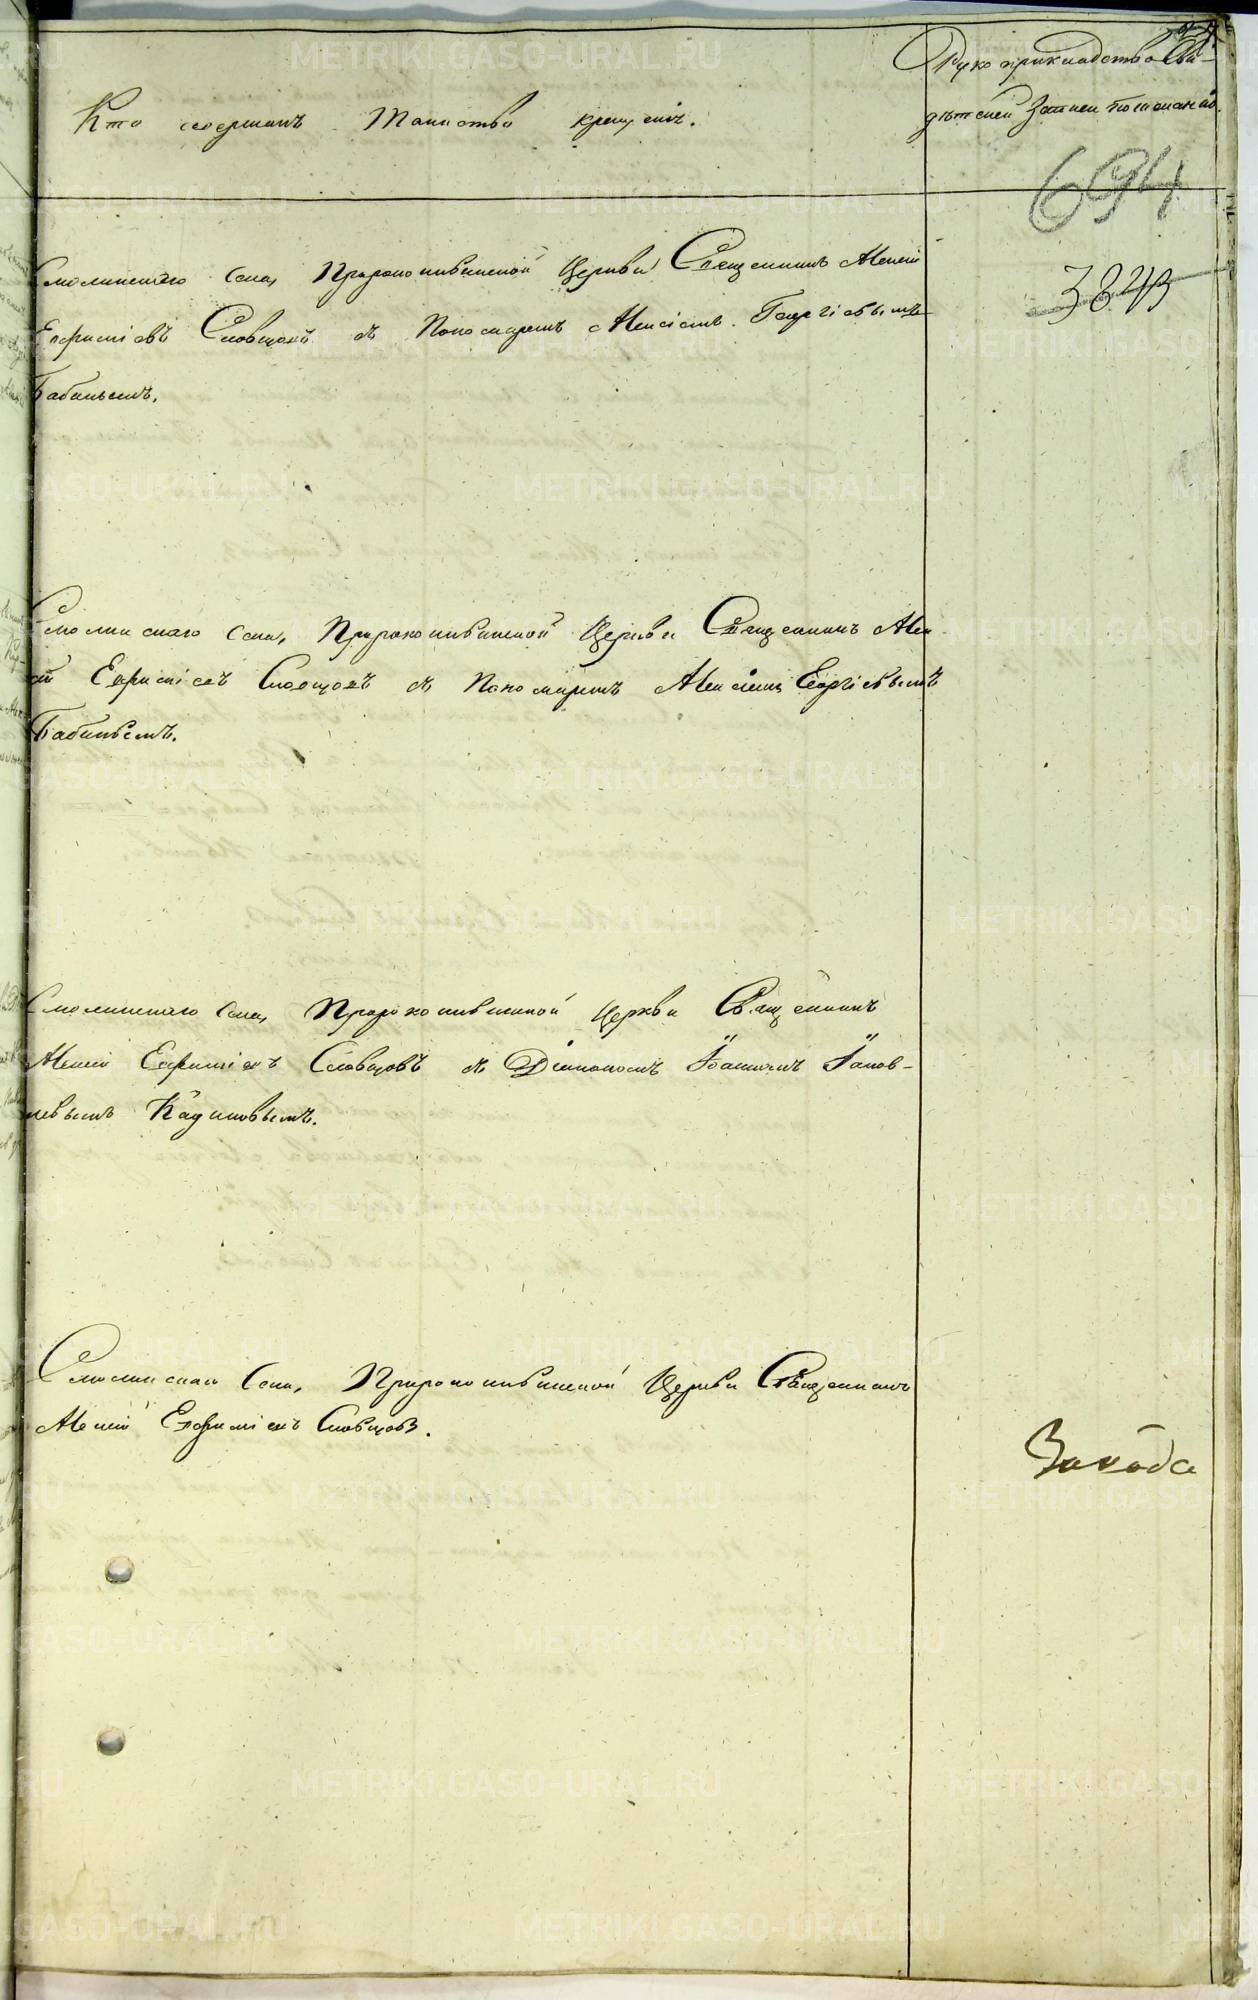 Кто совершалъ Таинство крещенія.
Рукоприкладство сви-
дѣтелей записи по желанію.
694
3843
Смолинскаго села, Пророкоильинской Церкви Священникъ Алексій
Евфиміевъ Словцовъ съ Пономаремъ Алексіемъ Георгіевымъ
Бабинымъ.
Смолинскаго села, Пророкоильинской Церкви Священникъ Алек-
сій Евфиміевъ Словцовъ съ Пономаремъ Алексіемъ Георгіевымъ
Бабинымъ.
Смолинскаго села, Пророкоильинской Церкви Священникъ
Алексій Евфиміевъ Словцовъ съ Діакономъ Іоанномъ Іаков-
левымъ Кадиновымъ.
Смолинскаго села, Пророкоильинской Церкви Священникъ
Алексій Евфиміевъ Словцовъ.
METRIKI.GASO-URAL.RU